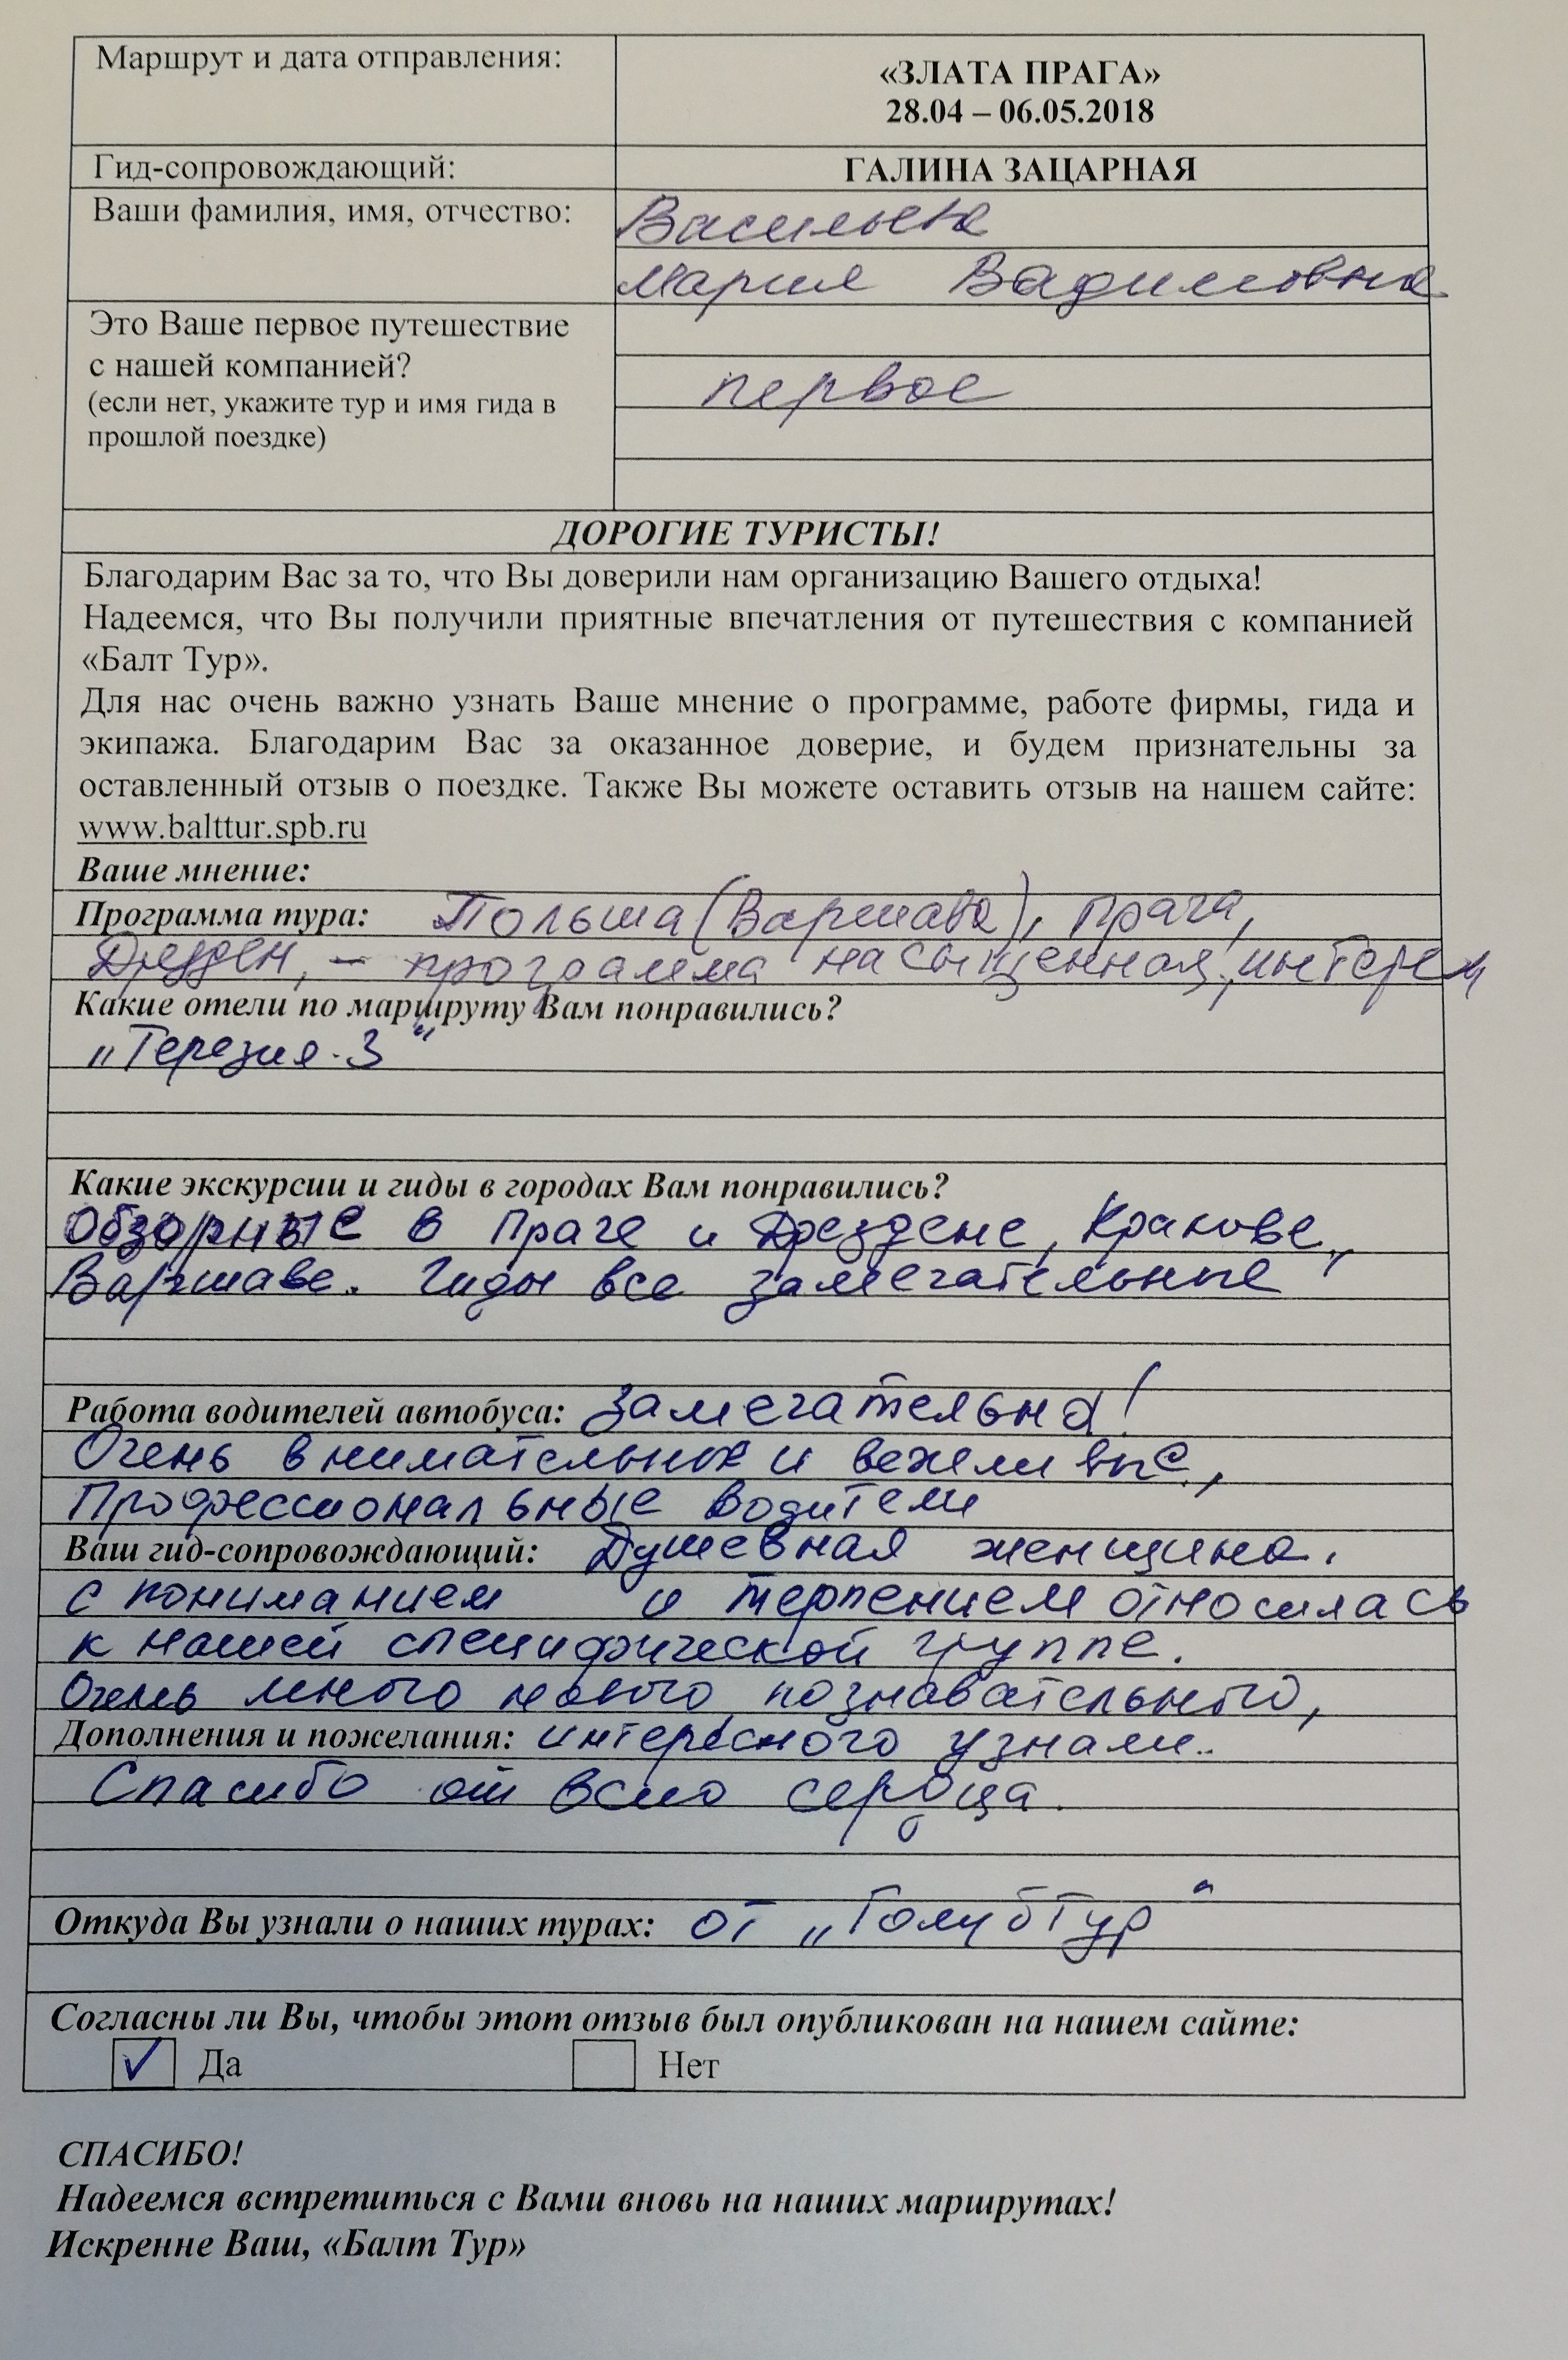 Маршрут и дата отправления:
«ЗЛАТА ПРАГА»
28.04 – 06.05.2018
Гид-сопровождающий:
ГАЛИНА ЗАЦАРНАЯ
Ваши фамилия, имя, отчество:
Васильева
Мария Вадимовна
Это Ваше первое путешествие
с нашей компанией?
(если нет, укажите тур и имя гида в
прошлой поездке)
первое
ДОРОГИЕ ТУРИСТЫ!
Благодарим Вас за то, что Вы доверили нам организацию Вашего отдыха!
Надеемся, что Вы получили приятные впечатления от путешествия с компанией
«Балт Тур».
Для нас очень важно узнать Ваше мнение о программе, работе фирмы, гида и
экипажа. Благодарим Вас за оказанное доверие, и будем признательны за
оставленный отзыв о поездке. Также Вы можете оставить отзыв на нашем сайте:
www.balttur.spb.ru
Ваше мнение:
Программа тура: Польша (Варшава), Прага,
Дрезден, – программа насыщенная,
Какие отели по маршруту Вам понравились?
„Терезия-3"
Какие экскурсии и гиды в городах Вам понравились?
Обзорные в Праге и Дрездене, Кракове,
Варшаве. Гиды все замечательные
Работа водителей автобуса: Замечательна!
Очень внимательные и вежливые,
Профессиональные водители
Ваш гид-сопровождающий: Душевная женщина.
с пониманием и терпением относилась
к нашей специфической группе.
Очень много нового, познавательного,
Дополнения и пожелания: интересного узнали..
Спасибо от всего сердца.
Откуда Вы узнали о наших турах: от „ГолубТур"
Согласны ли Вы, чтобы этот отзыв был опубликован на нашем сайте:
✓ Да Нет
СПАСИБО!
Надеемся встретиться с Вами вновь на наших маршрутах!
Искренне Ваш, «Балт Тур»